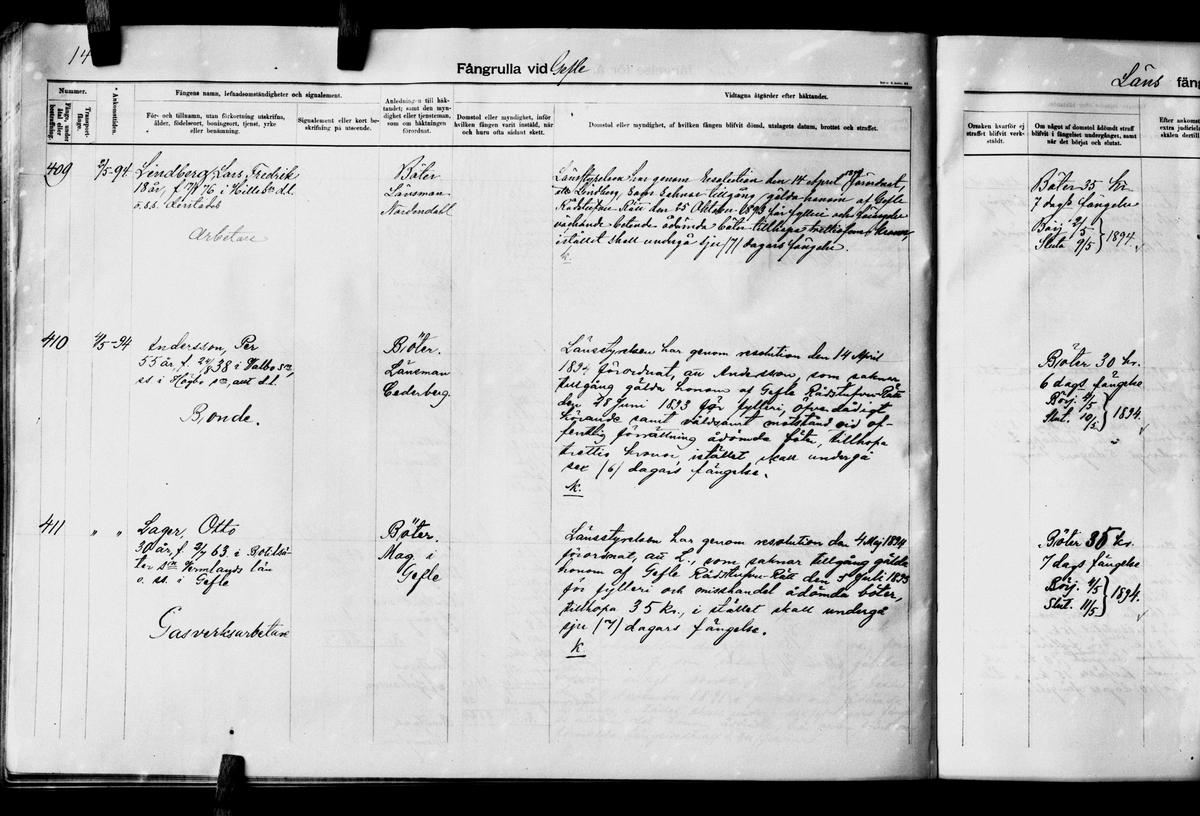 14
Fångrulla vid Gefle
Läns fång
Nummer.
Fånge, under åtal eller bestraffning.
Transport-fånge.
Ankomsttiden.
Fångens namn, lefnadsomständigheter och signalement.
För- och tillnamn, utan förkortning utskrifna,
ålder, födelseort, boningsort, tjenst, yrke
eller benämning.
Signalement eller kort be-
skrifning på utseende.
Anledningen till häk-
tandet; samt den myn-
dighet eller tjensteman,
som om häktningen
förordnat.
Domstol eller myndighet, inför
hvilken fången varit instäld, när
och huru ofta sådant skett.
Vidtagna åtgärder efter häktandet.
Domstol eller myndighet, af hvilken fången blifvit dömd, utslagets datum, brottet och straffet.
Orsaken hvarför ej
straffet blifvit verk-
stäldt.
Om något af domstol ådömdt straff
blifvit i fängelset undergånget, samt
när det börjat och slutat.
Efter ankomst
extra judiciel
skälen dertill
409
2/5-94
Lindberg, Lars Fredrik
18 år, f. 76 i Hille sn d.l.
o.s.s.
Arbetare
Böter
Länsman
Nordendahl
Länsstyrelsen har genom Resolution den 14 April förordnat,
att Lindberg, som saknar tillgång gälda honom af Gefle
Rådstufvu Rätt den 25 Oktober 1893 för fylleri och förargelse
väckande beteende ådömda böter tillhopa trettiofem kronor,
istället skall undergå sju /7/ dagars fängelse.
k.
Böter 35 kr.
7 dags fängelse
Börj 2/5
Slut. 9/5 } 1894.
410
4/5-94
Andersson, Per
55 år, f. 24/8 38 i Valbo sn,
ss i Högbo sn, allt d.l.
Bonde.
Böter.
Länsman
Cederberg.
Länsstyrelsen har genom resolution den 14 April
1894 förordnat, att Andersson, som saknar
tillgång gälda honom af Gefle Rådstufvu-Rätt
den 28 Juni 1893 för fylleri, öfverdådigt
körande samt våldsamt motstånd vid of-
fentlig förrättning ådömda böter, tillhopa
trettio kronor, istället skall undergå
sex /6/ dagars fängelse.
k.
Böter 30 kr.
6 dags fängelse
Börj. 4/5
Slut. 10/5 } 1894.
411
" "
Lager, Otto
30 år, f. 2/7 63 i Botilsä-
ter sn Vermlands län
o. ss. i Gefle
Gasverksarbetare
Böter.
Mag. i
Gefle
Länsstyrelsen har genom resolution den 4 Maj 1894
förordnat, att L., som saknar tillgång gälda
honom af Gefle Rådstufvu-Rätt den 5 Juli 1893
för fylleri och misshandel ådömda böter,
tillhopa 35 kr., i stället skall undergå
sju /7/ dagars fängelse.
k
Böter 35 kr.
7 dags fängelse
Börj. 4/5
Slut. 11/5 } 1894.